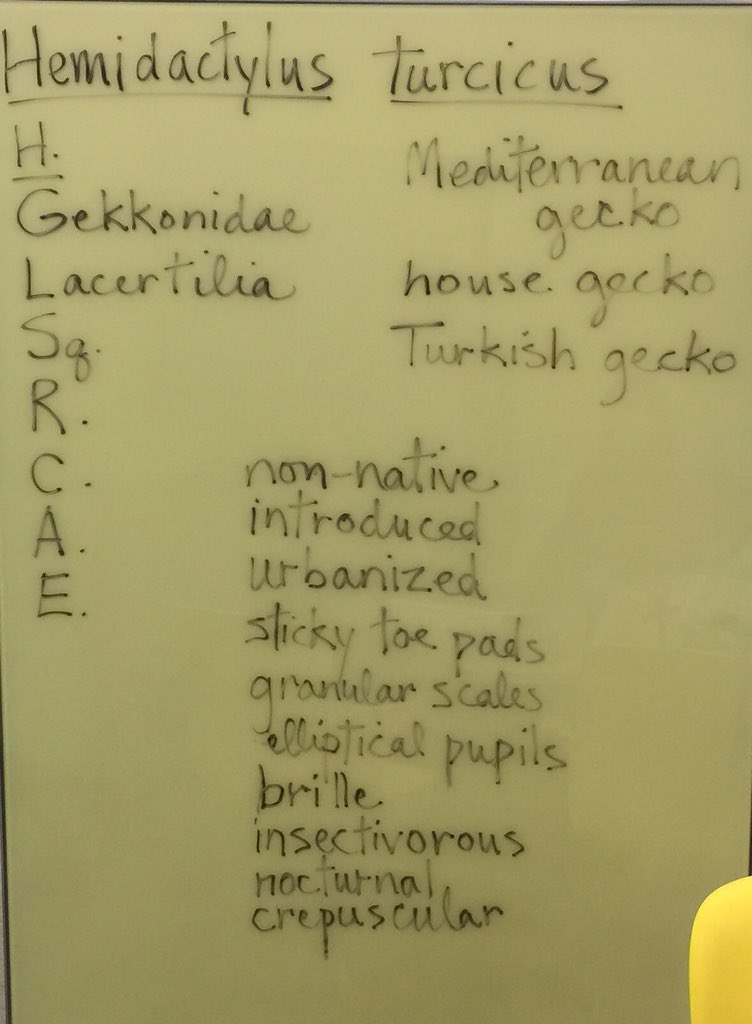 Hemidactylus turcicus
H.
Gekkonidae
Lacertilia
Sq.
R.
C.
A.
E.
Mediterranean
gecko
house gecko
Turkish gecko
non-native
introduced
urbanized
sticky toe pads
granular scales
elliptical pupils
brille
insectivorous
nocturnal
crepuscular